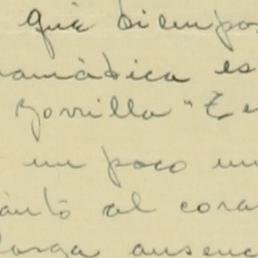 Qué tiempos
ramática es
Zorrilla "Te
un poco un
ánto al cora
larga ausenc